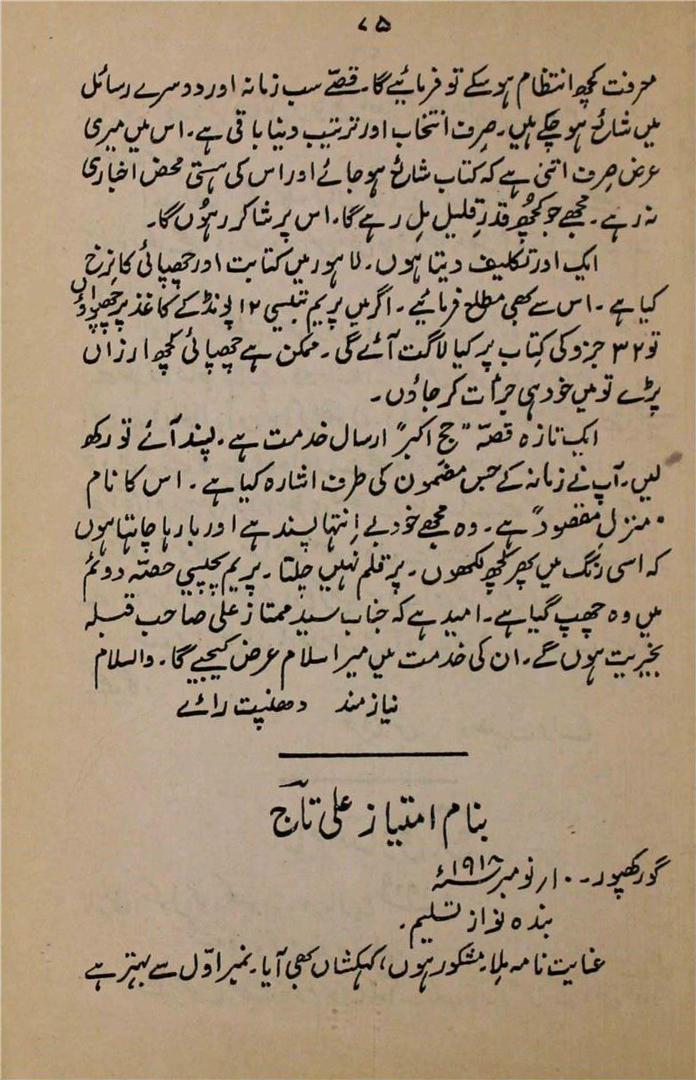 ۷۵
معرفت کچھ انتظام ہو سکے تو فرمائیے گا۔ قصّے سب زمانہ اور دوسرے رسائل
میں شائع ہو چکے ہیں۔ صرف انتخاب اور ترتیب دینا باقی ہے۔ اس میں میری
غرض صرف اتنی ہے کہ کتاب شائع ہو جائے اور اس کی ہستی محض اخباری
نہ رہے۔ مجھے جو کچھ قدرِ قلیل مِل رہے گا۔ اس پر شاکر رہوں گا۔
ایک اور تکلیف دیتا ہوں۔ لاہور میں کتابت اور چھپائی کا نرخ
کیا ہے۔ اس سے بھی مطلع فرمائیے۔ اگر میں پریم بتیسی ۱۲ پونڈ کے کاغذ پر چھپواؤں
تو ۳۲ جزو کی کتاب پر کیا لاگت آئے گی۔ ممکن ہے چھپائی کچھ ارزاں
پڑے تو میں خود ہی جرأت کر جاؤں۔
ایک تازہ قصّہ "حجِ اکبر" ارسالِ خدمت ہے۔ پسند آئے تو رکھ
لیں۔ آپ نے زمانہ کے جس مضمون کی طرف اشارہ کیا ہے۔ اس کا نام
"منزلِ مقصود" ہے۔ وہ مجھے خود بے اِنتہا پسند ہے اور بارہا چاہتا ہوں
کہ اسی رنگ میں پھر کچھ لکھوں۔ پر قلم نہیں چلتا۔ پریم پچیسی حصّہ دوئم
میں وہ چھپ گیا ہے۔ امید ہے کہ جناب سید ممتاز علی صاحب قبلہ
بخیریت ہوں گے۔ ان کی خدمت میں میرا سلام عرض کیجیے گا۔ والسلام
نیازمند دھنپت رائے
بنام امتیاز علی تاج
گورکھپور۔ ۱۰ر نومبر ۱۹۱۸ء
بندہ نواز تسلیم۔
عنایت نامہ مِلا۔ مشکور ہوں، کہکشاں بھی آیا۔ نمبر اوّل سے بہتر ہے